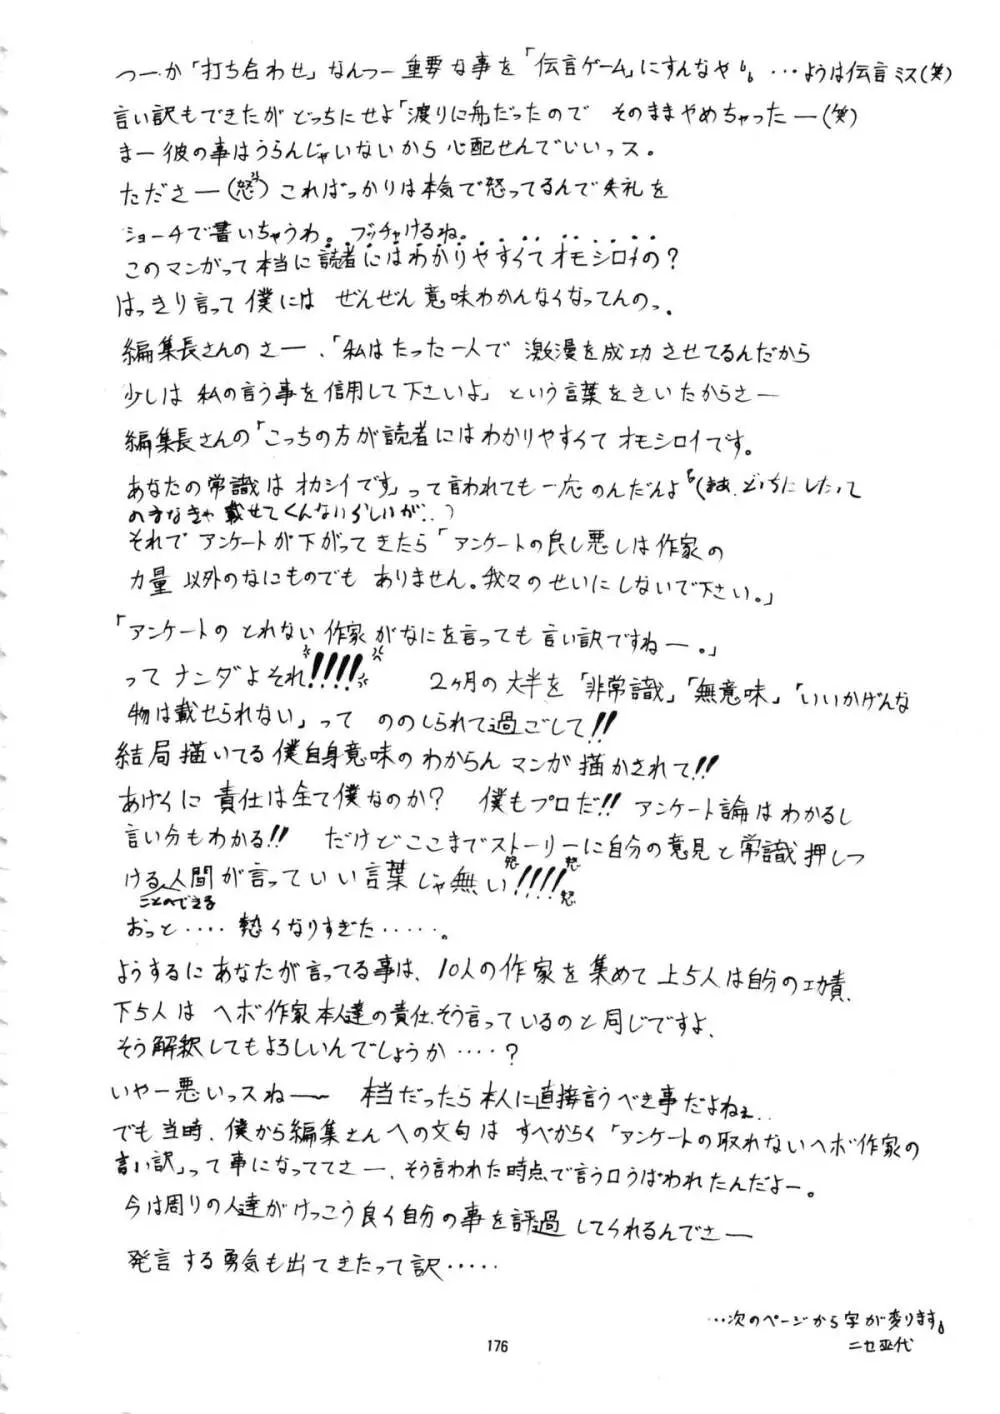 つーか「打ち合わせ」なんつー重要な事を「伝言ゲーム」にすんなや。…ようは伝言ミス(笑)
言い訳もできたがどっちにせよ「渡りに舟」だったので そのままやめちゃったー(笑)
まー彼の事はうらんじゃいないから心配せんでいいっス。
たださー(怒)こればっかりは本気で怒ってるんで失礼を
ショーチで書いちゃうわ。ブッチャけるね。
このマンガって本当に読者にはわかりやすくてオモシロイの?
はっきり言って僕には ぜんぜん意味わかんなくなってんのっ。
編集長さんのさー、「私はたった一人で 激漫を成功させてるんだから
少しは 私の言う事を信用して下さいよ」という言葉をきいたからさー
編集長さんの「こっちの方が読者にはわかりやすくてオモシロイです。
あなたの常識はオカシイです」って言われても一応のんだんよ(まぁ、どっちにしたって
のまなきゃ載せてくんないらしいが..)
それでアンケートが下がってきたら「アンケートの良し悪しは作家の
力量以外のなにものでもありません。我々のせいにしないで下さい。」
「アンケートのとれない作家がなにを言っても言い訳ですねー。」
ってナンダよそれ!!!! 2ヶ月の大半を「非常識」「無意味」「いいかげんな
物は載せられない」って ののしられて過ごして!!
結局描いてる僕自身意味のわからんマンガ描かされて!!
あげくに責任は全て僕なのか? 僕もプロだ!! アンケート論はわかるし
言い分もわかる!! だけどここまでストーリーに自分の意見と常識押しつ
ける人間が言っていい言葉じゃ無い!!!! 怒 怒 怒
ことのできる
おっと‥‥熱くなりすぎた‥‥‥。
ようするにあなたが言ってる事は、10人の作家を集めて上5人は自分の功責、
下5人はヘボ作家本人達の責任、そう言っているのと同じですよ、
そう解釈してもよろしいんでしょうか‥‥?
いやー悪いっスねー 本当だったら本人に直接言うべき事だよねぇ..
でも当時、僕から編集さんへの文句は すべからく「アンケートの取れないヘボ作家の
言い訳」って事になっててさー、そう言われた時点で言う口うばわれたんだよー。
今は周りの人達がけっこう良く自分の事を評過してくれるんでさー
発言する勇気も出てきたって訳‥‥‥
…次のページから字が変ります。
ニセ亜代
176